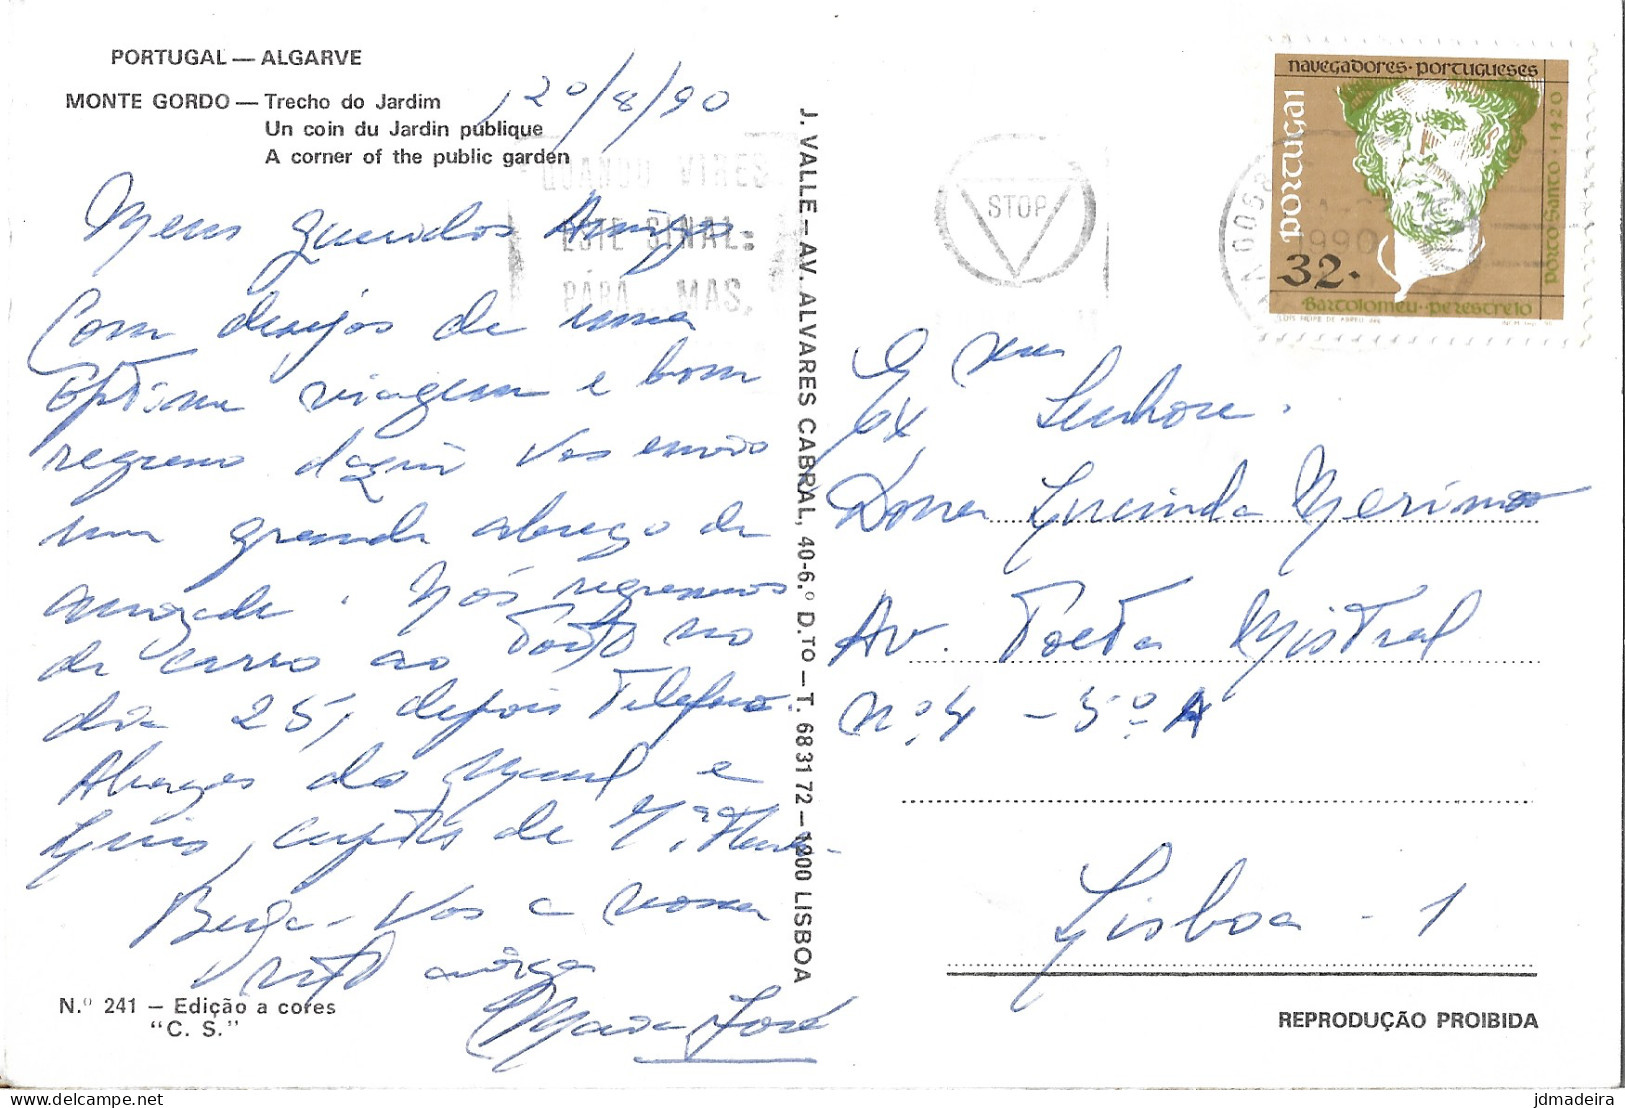 PORTUGAL — ALGARVE
MONTE GORDO — Trecho do Jardim
Un coin du Jardin publique
A corner of the public garden
20/8/90
Meus queridos Amigos
Com desejos de uma
óptima viagem e bom
regresso daqui vos envio
um grande abraço de
amizade. Nós regressamos
de carro ao Porto no
dia 25, depois telefono.
Abraços do Manel e
Luis,
Beija-vos a vossa
amiga
Maria José
N.º 241 — Edição a cores
"C. S."
J. VALLE — AV. ALVARES CABRAL, 40-6.º D.TO — T. 683172 — 1200 LISBOA
QUANDO VIRES
ESTE SINAL:
PÁRA MAS,
STOP
1990
navegadores · portugueses
portugal
32.
porto santo · 1420
Bartolomeu · perestrelo
Ex ma
Senhora.
Dona Lucinda Merino
Av. Poeta Mistral
nº 4 - 5º A
Lisboa - 1
REPRODUÇÃO PROIBIDA
jdmadeira